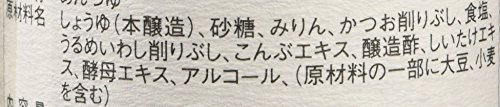 原材料名
しょうゆ(本醸造)、砂糖、みりん、かつお削りぶし、食塩、
うるめいわし削りぶし、こんぶエキス、醸造酢、しいたけエキ
ス、酵母エキス、アルコール、(原材料の一部に大豆、小麦
を含む)